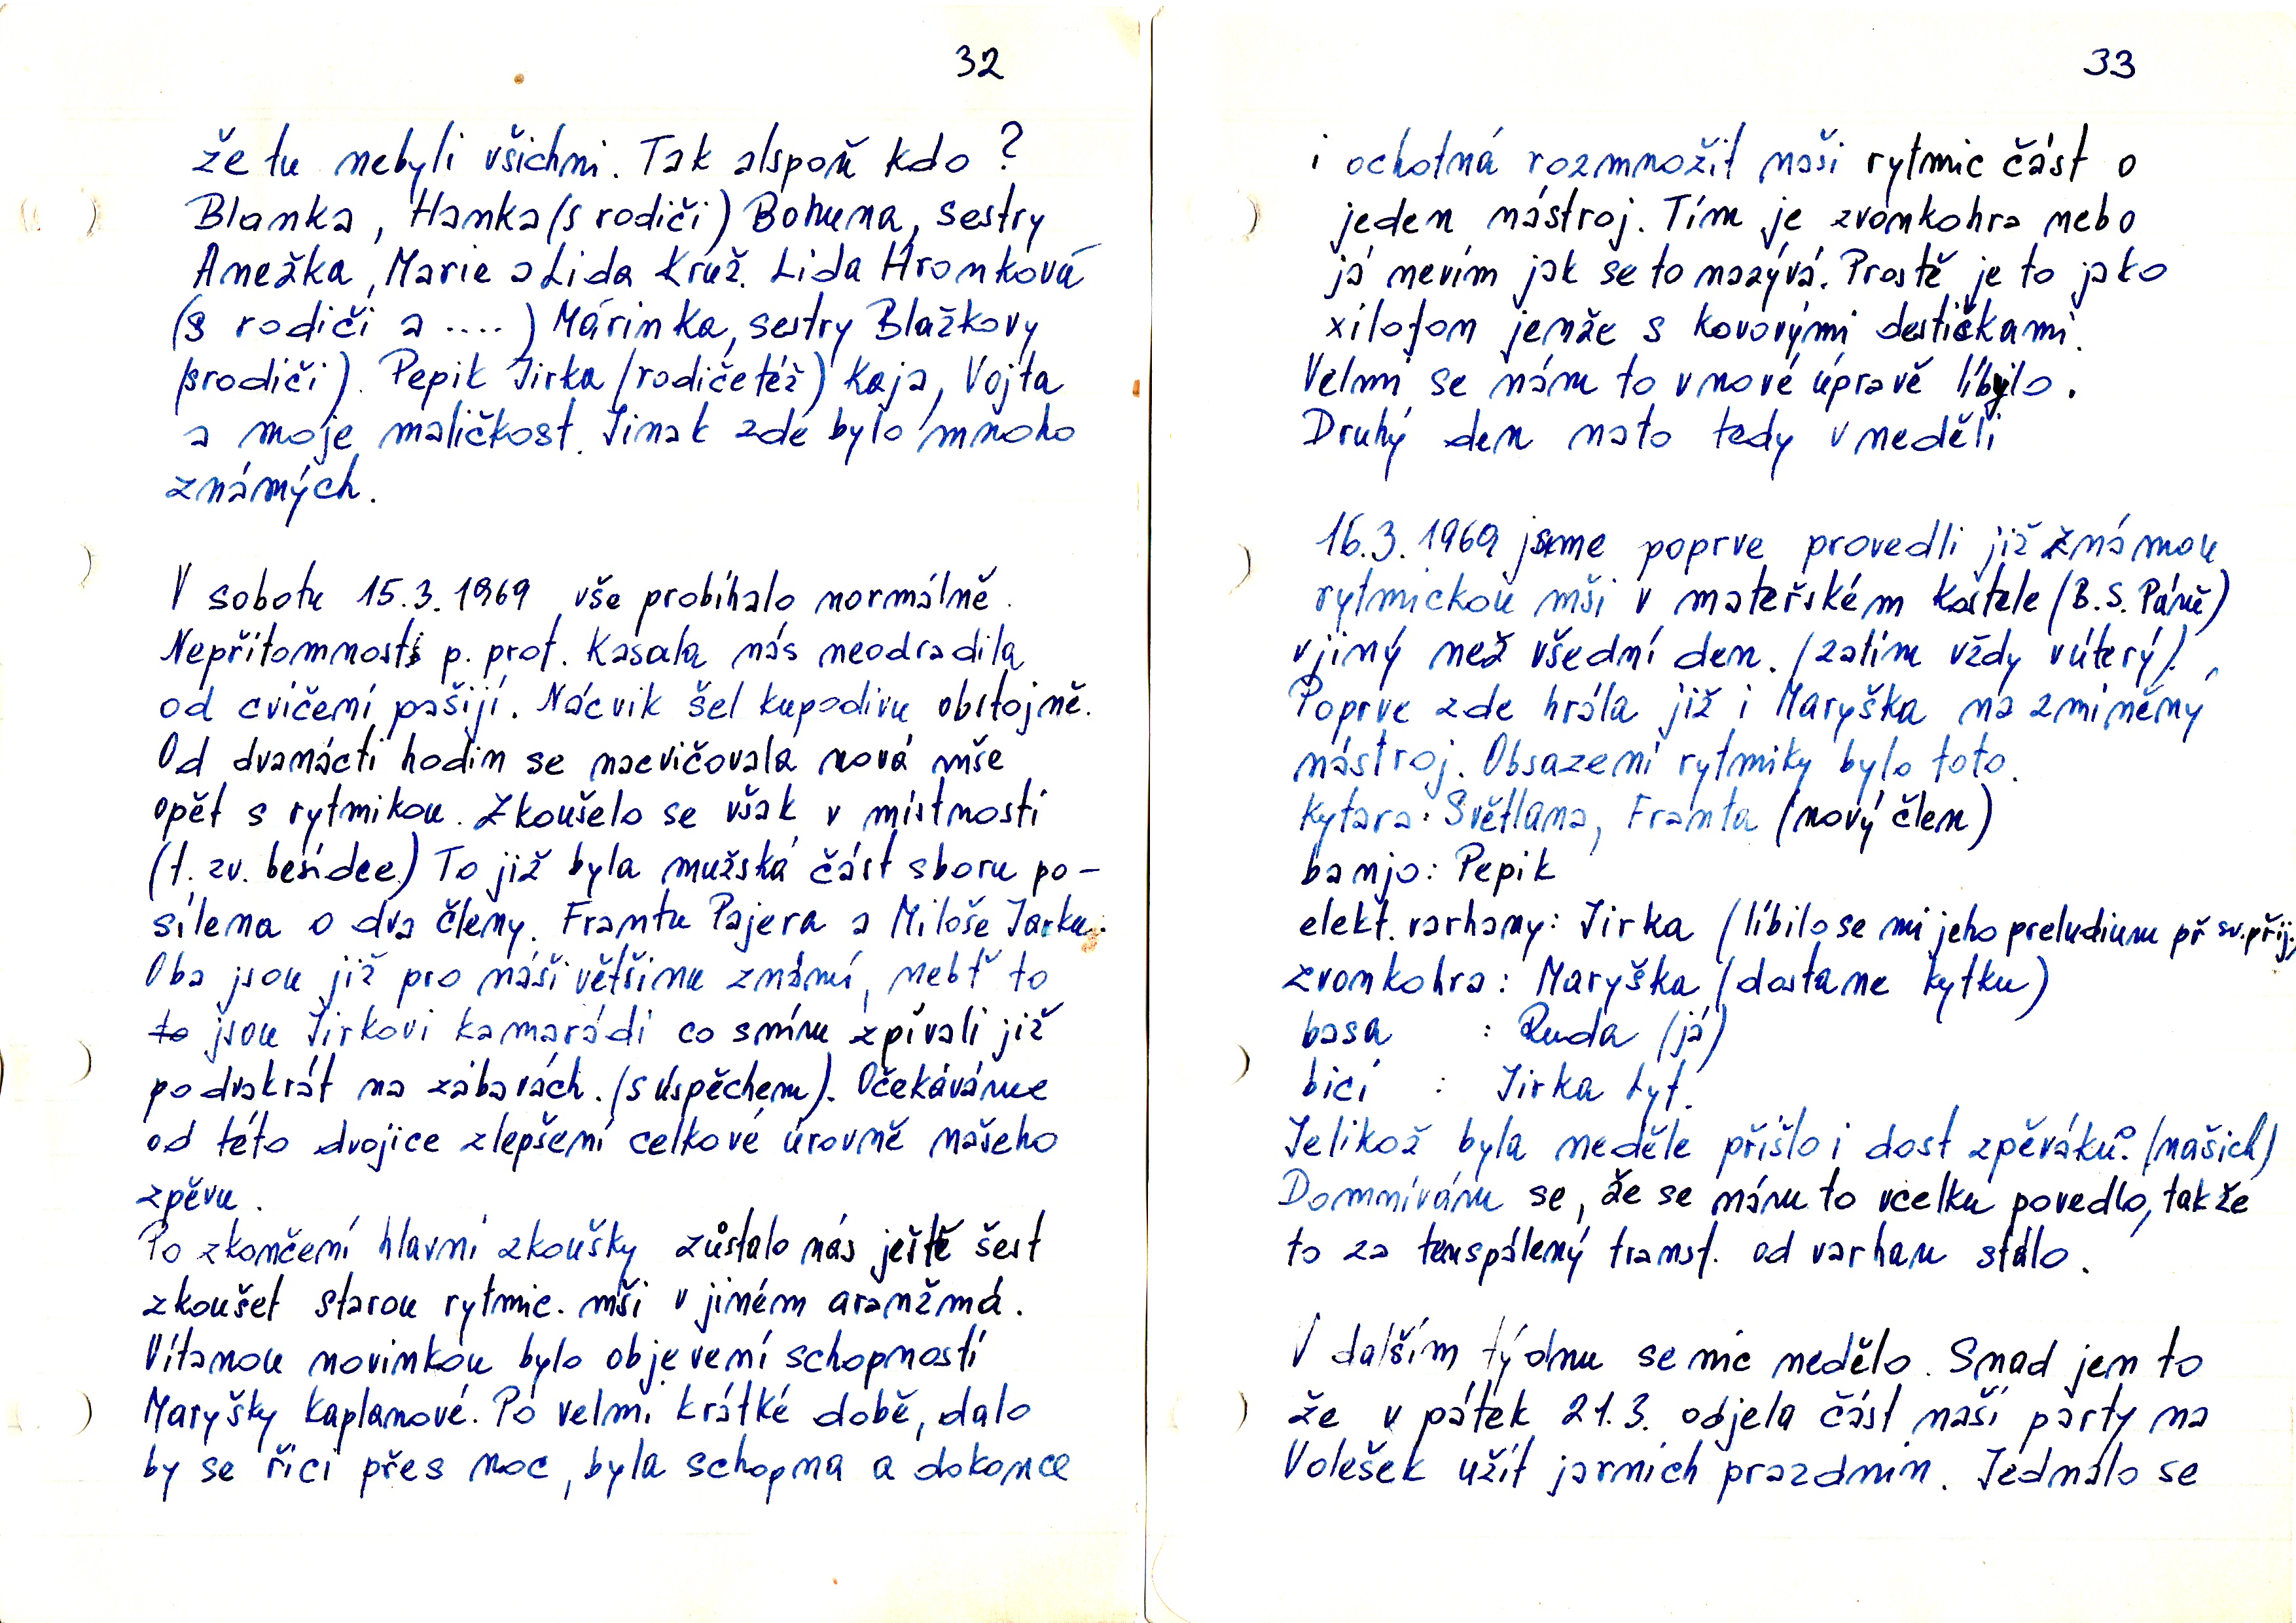 32
že tu nebyli všichni. Tak alspoň kdo?
Blanka, Hanka (s rodiči) Bohuna, sestry
Anežka, Marie a Lida Kruž. Lida Hronková
(s rodiči a ....) Márinka, sestry Blažkovy
(srodiči). Pepik Jirka (rodičetéž) Kaja, Vojta
a moje maličkost. Jinak zde bylo mnoho
známých.
V sobotu 15.3.1969 vše probíhalo normálně.
Nepřítomnosti p. prof. Kasala nás neodradila
od cvičení pašijí. Nácvik šel kupodivu obstojně.
Od dvanácti hodin se nacvičovala nová mše
opět s rytmikou. Zkoušelo se však v místnosti
(t. zv. besídce.) To již byla mužská část sboru po-
sílena o dva členy. Frantu Pajera a Miloše Jarku.
Oba jsou již pro náši většinu známí, nebť to
to jsou Jirkovi kamarádi co snímu zpívali již
podvakrát na zábavách. (s úspěchem). Očekáváme
od této dvojice zlepšení celkové úrovně našeho
zpěvu.
Po zkončení hlavní zkoušky zůstalo nás ještě šest
zkoušet starou rytmic. mši v jiném aranžmá.
Vítanou novinkou bylo objevení schopností
Maryšky Kaplanové. Po velmi krátké době, dalo
by se říci přes noc, byla schopna a dokonce
33
i ochotná rozmnožit naši rytmic část o
jeden nástroj. Tím je zvonkohra nebo
já nevím jak se to nazývá. Prostě je to jako
xilofon jenže s kovovými destičkami.
Velmi se nám to v nové úpravě líbilo.
Druhý den nato tedy v neděli
16.3.1969 jsme poprve provedli již známou
rytmickou mši v mateřském kostele (B.S. Páně)
v jiný než všední den. (zatím vždy v úterý).
Poprve zde hrála již i Maryška na zmíněný
nástroj. Obsazení rytmiky bylo toto.
Kytara: Světlana, Franta (nový člen)
banjo: Pepik
elekt. varhany: Jirka (líbilo se mi jeho preludium př sv. přij.)
zvonkohra: Maryška (dostane kytku)
basa : Ruda (já)
bicí : Jirka Lyt.
Jelikož byla neděle přišlo i dost zpěváků. (našich)
Domnívám se, že se nám to vcelku povedlo, takže
to za tenspálený transf. od varhan stálo.
V dalším týdnu se nic nedělo. Snad jen to
že v pátek 21.3. odjela část naší party na
Volešek užít jarních prazdnin. Jednalo se